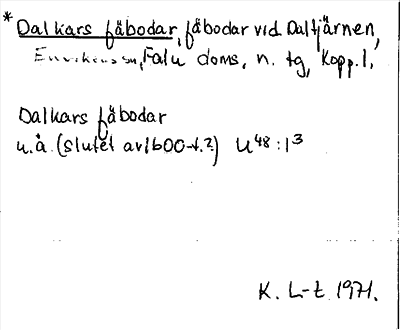 * Dalkars fäbodar, fäbodar vid Daltjärnen,
Envikens sn, Falu doms, n. tg, Kopp. l.
Dalkars fäbodar
u.å. (slutet av 1600-t.?) U48:13
K. L-t 1971.